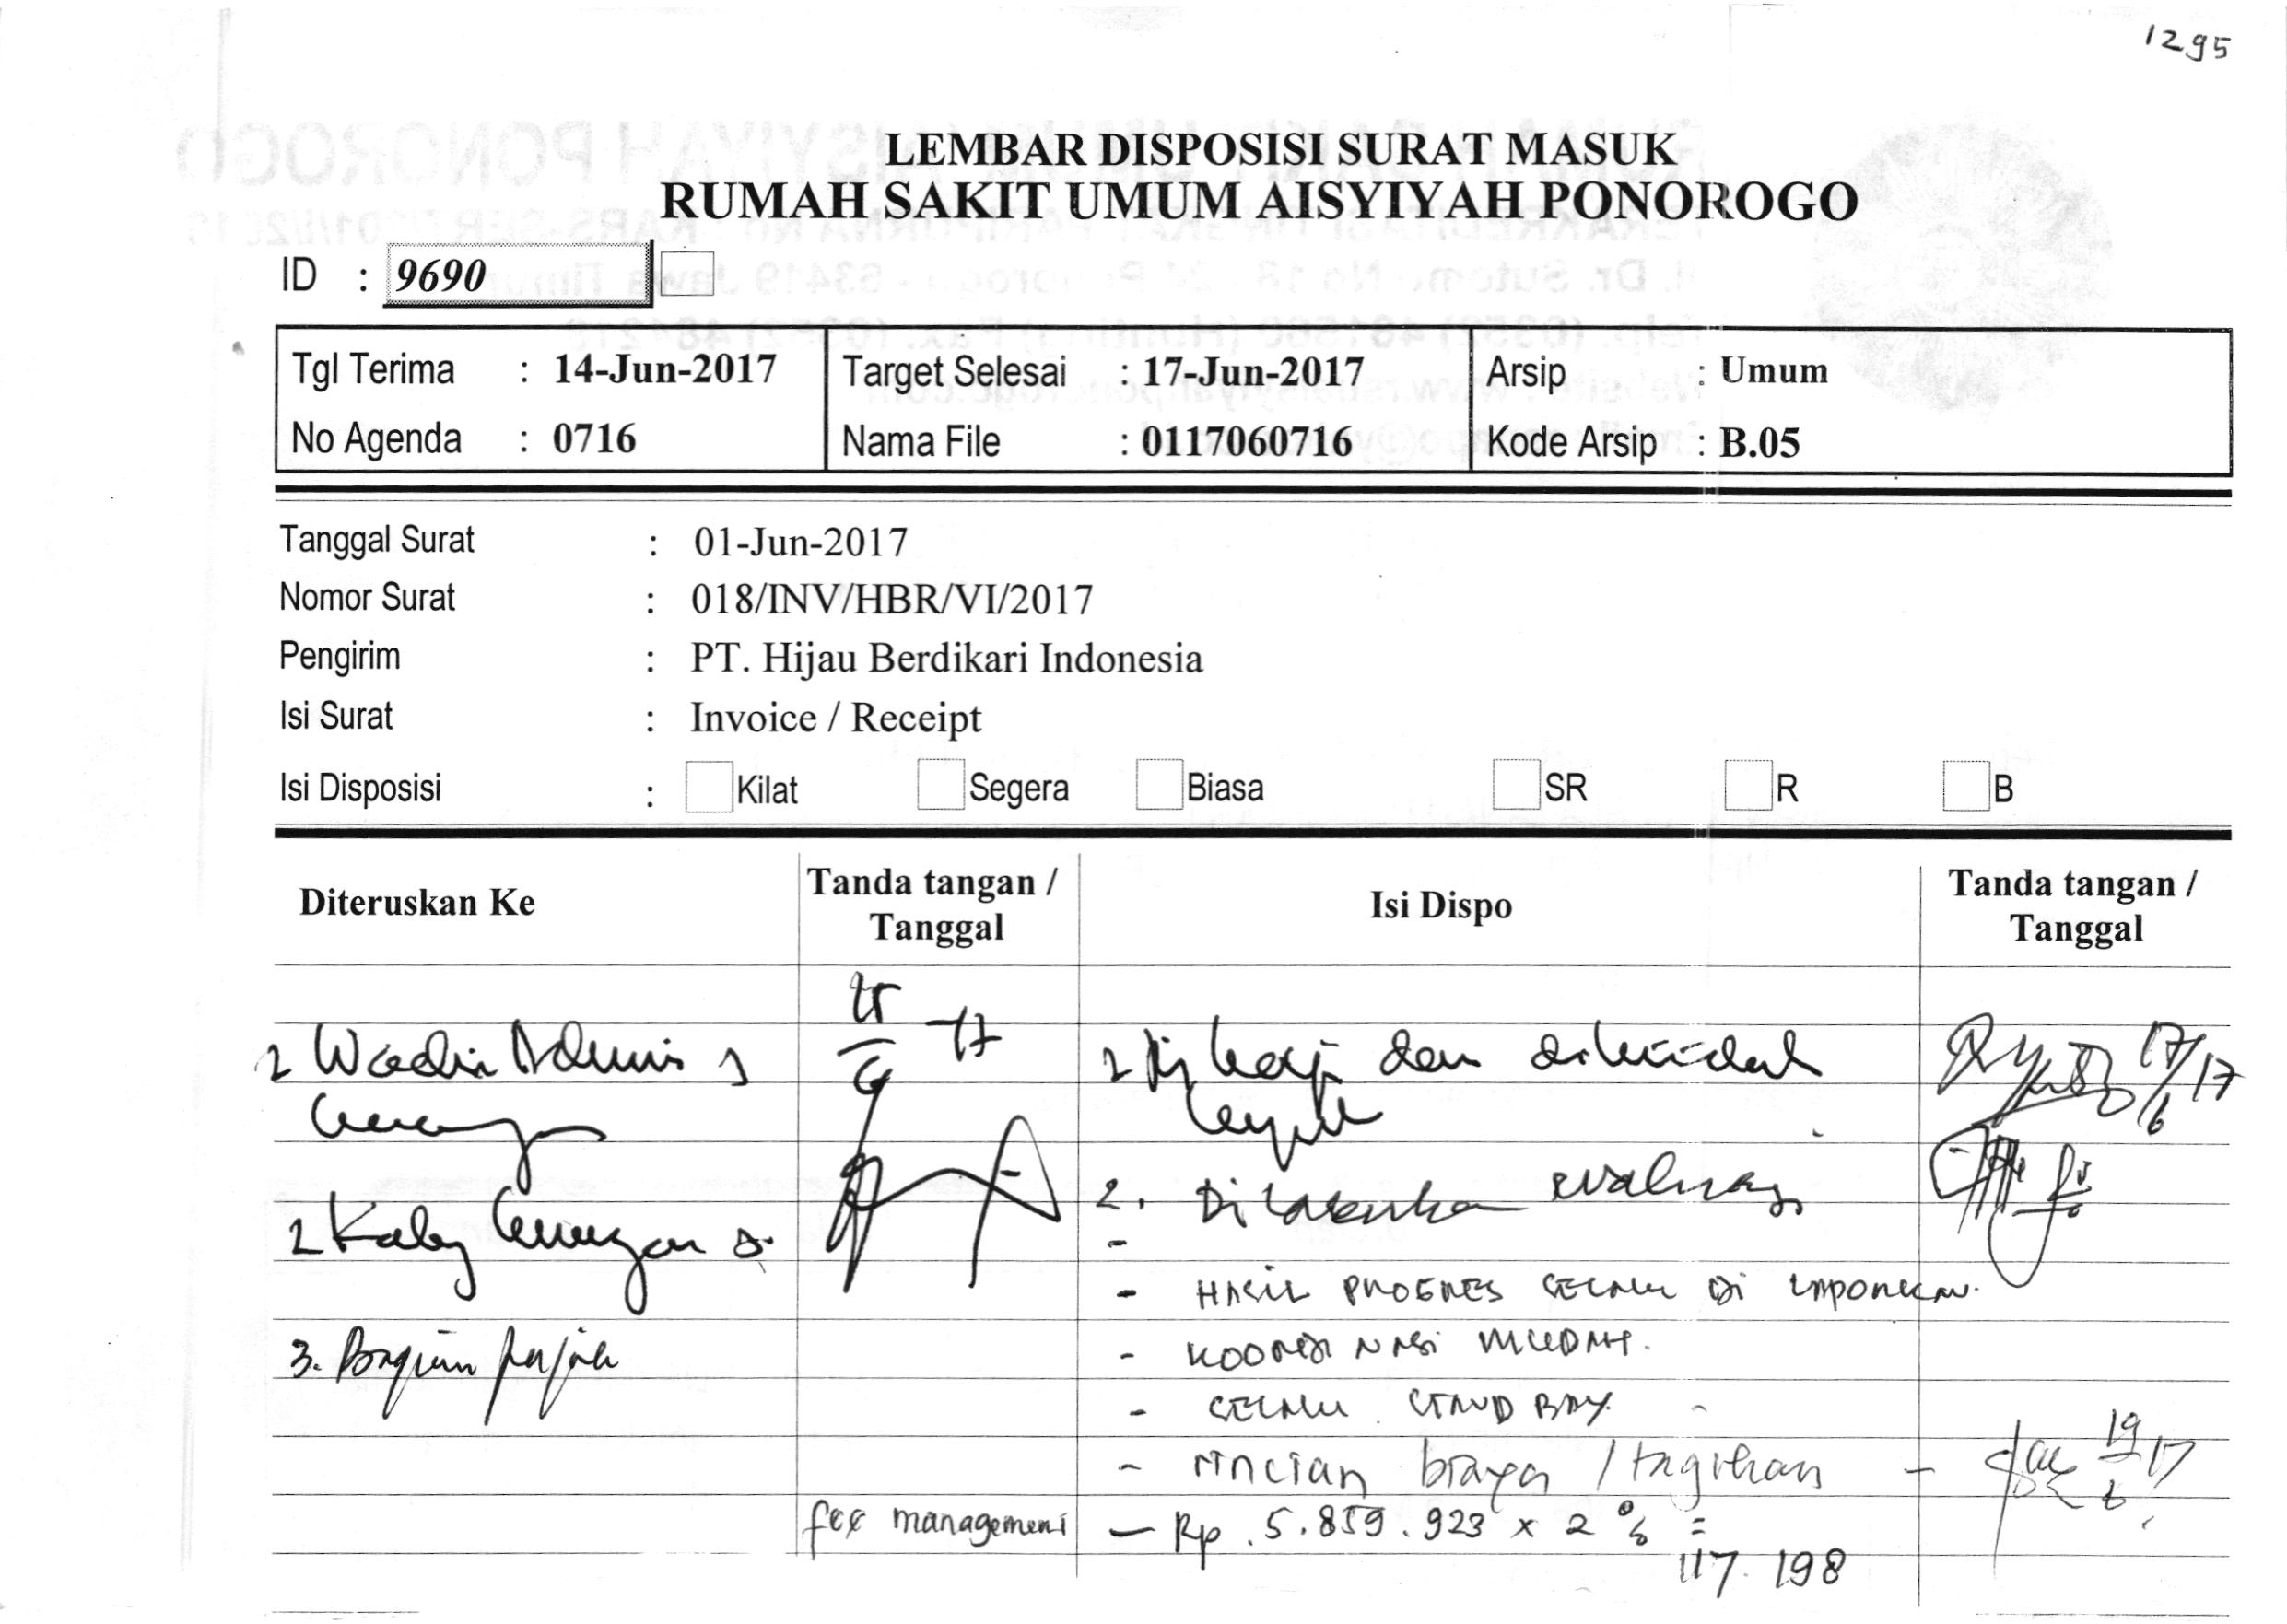 1295
LEMBAR DISPOSISI SURAT MASUK
RUMAH SAKIT UMUM AISYIYAH PONOROGO
ID : 9690
Tgl Terima : 14-Jun-2017 Target Selesai : 17-Jun-2017 Arsip : Umum
No Agenda : 0716 Nama File : 0117060716 Kode Arsip : B.05
Tanggal Surat : 01-Jun-2017
Nomor Surat : 018/INV/HBR/VI/2017
Pengirim : PT. Hijau Berdikari Indonesia
Isi Surat : Invoice / Receipt
Isi Disposisi : Kilat Segera Biasa SR R B
Diteruskan Ke
Tanda tangan /
Tanggal
Isi Dispo
Tanda tangan /
Tanggal
Wadir
dan
17/6 17
2. Dilakukan evaluasi
- HASIL PROGRES SELALU DI LAPORKAN.
3. Bagian pajak
- KOORDINASI MUDAH.
- SELALU STAND BAY.
- rincian biaya / tagihan - 19/6 17
fee management — Rp. 5.859.923 x 2 % =
117.198